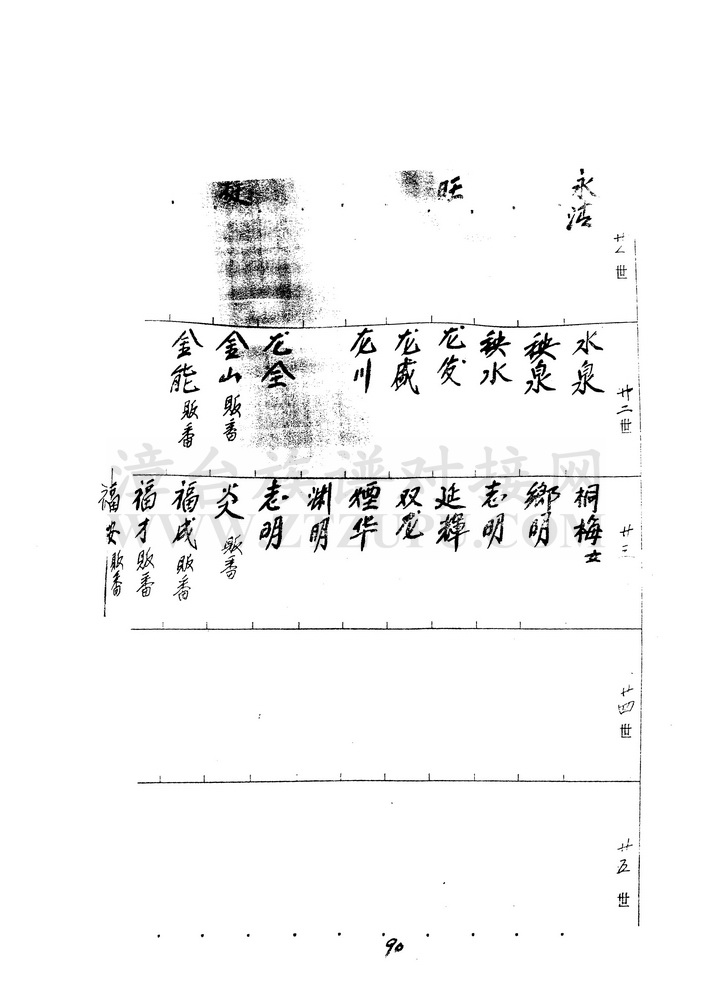 永洪
旺
廿一世
水泉
秧泉
秧水
龙发
龙盛
龙川
龙全
金山 贩番
金能 贩番
廿二世
桐梅女
鄉明
志明
延輝
双龙
煙华
渊明
志明
炎 贩番
福成 贩番
福才 贩番
福安 贩番
廿三
廿四世
廿五世
漳台族谱对接网
WWW.ZTZUPU.COM
90